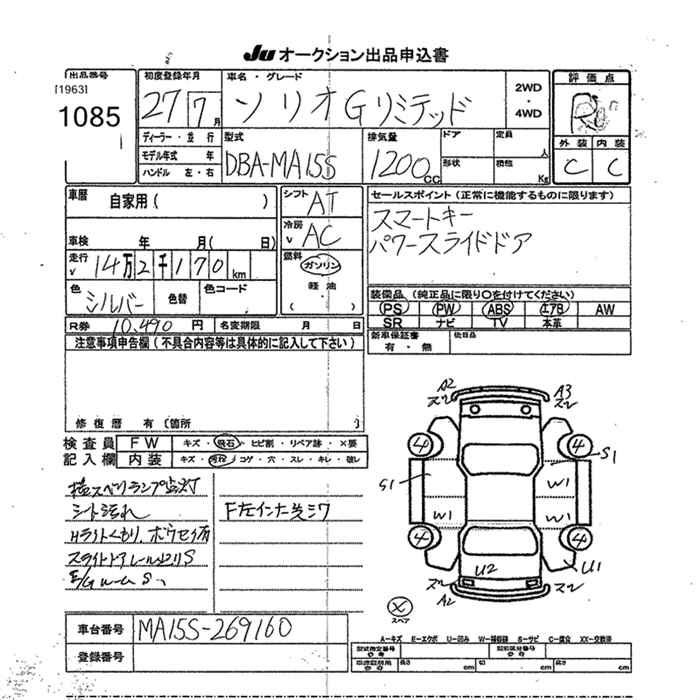 Ju オークション出品申込書
出品番号 初度登録年月 車名・グレード 2WD ・ 4WD 評価点
[1963]
1085
27 7月 ソリオ Gリミテッド
外装 内装
C C
ディーラー・並行 型式 排気量 ドア 定員 人
モデル年式 年 DBA-MA15S 1200cc 形状 積載 Kg
ハンドル 左・右
車歴 自家用( ) シフト AT セールスポイント(正常に機能するものに限ります)
スマートキー
パワースライドドア
車検 年 月( 日) 冷房 AC
走行 14万2千170km 燃料 ガソリン
軽油
( )
色 シルバー 色替 色コード
装備品(純正品に限り○を付けてください)
PS PW ABS エアB AW
SR ナビ TV 本革
R券 10,490円 名変期限 月 日
新車保証書 後日品
有・無
注意事項申告欄(不具合内容等は具体的に記入して下さい)
修復歴 有(箇所 )
検査員 FW キズ・飛石・ヒビ割・リペア跡・×要
記入欄 内装 キズ・汚れ・コゲ・穴・スレ・キレ・破レ
横スベリランプ点灯
シート汚れ F左インナー欠ミワ
Hライトくもり、
スライドドアレール
A2 A3
スレ スレ
4 4
S1 S1
W1
W1 W1
4 4
U2 U1
スレ スレ
A2
× スペア
車台番号 MA15S-269160
登録番号
A-キズ E-エクボ U-凹み W-補修跡 S-サビ C-腐食 XX-交換済
型式指定番号 類別区分番号
長さ cm 幅 cm 高さ cm